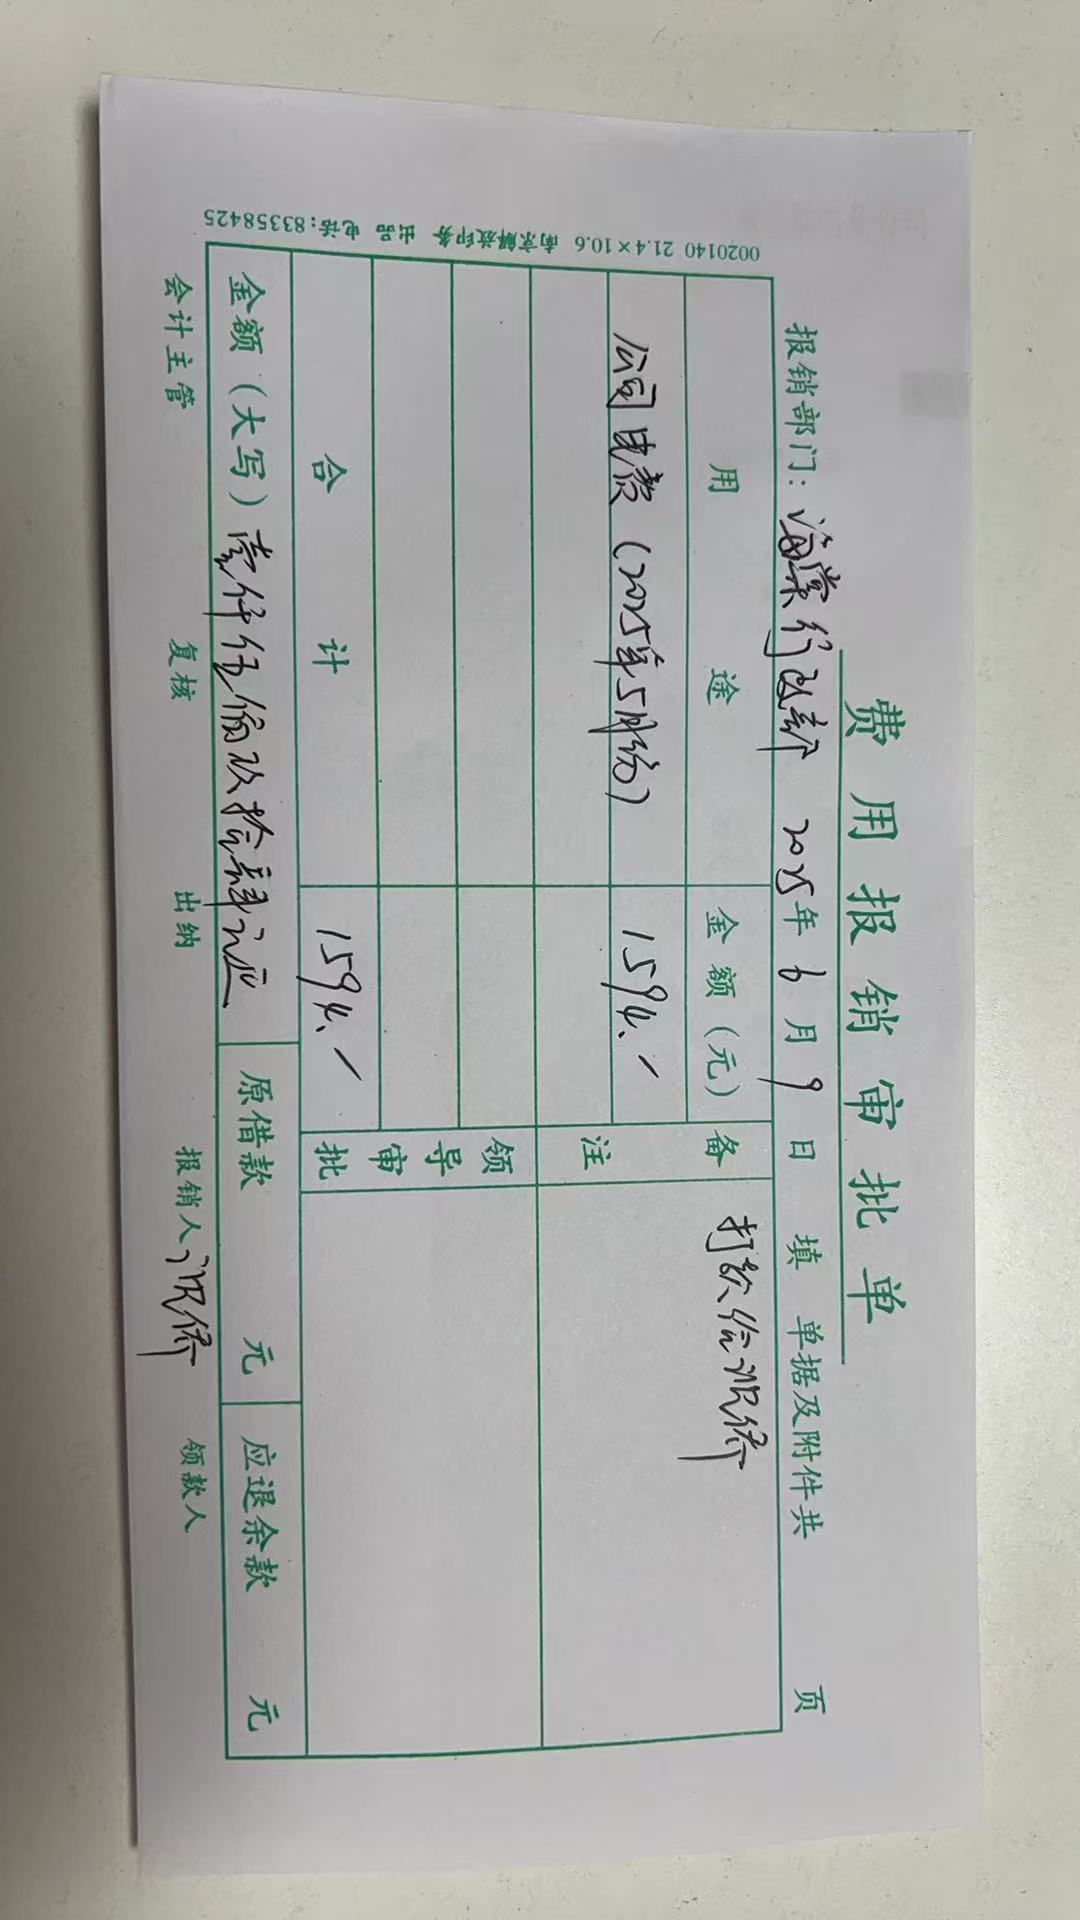 费用报销审批单
报销部门：海棠行政部 2025年6月9日填 单据及附件共 页
用途 金额（元） 备注 打款给
公司电费（2025年5月份） 1594.
领导审批
合计 1594.
金额（大写）壹仟伍佰玖拾肆元 原借款 元 应退余款 元
会计主管 复核 出纳 报销人 领款人
0020140 21.4×10.6 南京解放印务 出品 电话:83358425